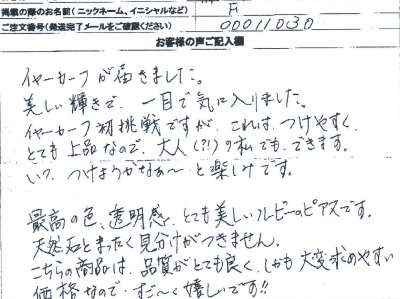 掲載の際のお名前(ニックネーム、イニシャルなど) F
ご注文番号(発送完了メールをご確認ください) 00011030
お客様の声ご記入欄
イヤーカーフが届きました。
美しい輝きで、一目で気に入りました。
イヤーカーフ初挑戦ですが、これは、つけやすく、
とても上品なので、大人(?!)の私でも、できます。
いつ、つけようかなぁ〜と楽しみです。
最高の色、透明感、とても美しいルビーのピアスです。
天然石とまったく見分けがつきません。
こちらの商品は、品質がとても良く、しかも大変求めやすい
価格なので、すご〜く嬉しいです!!